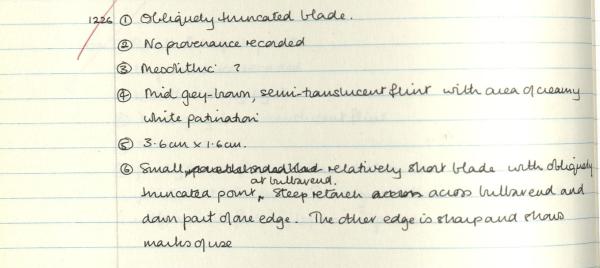 1226 ① Obliquely truncated blade.
② No provenance recorded
③ Mesolithic ?
④ Mid grey-brown, semi-translucent flint with area of creamy
white patination
⑤ 3.6cm x 1.6cm.
⑥ Small, relatively short blade with obliquely
at bulbar end.
truncated point, Steep retouch across across bulbar end and
down part of one edge. The other edge is sharp and shows
marks of use